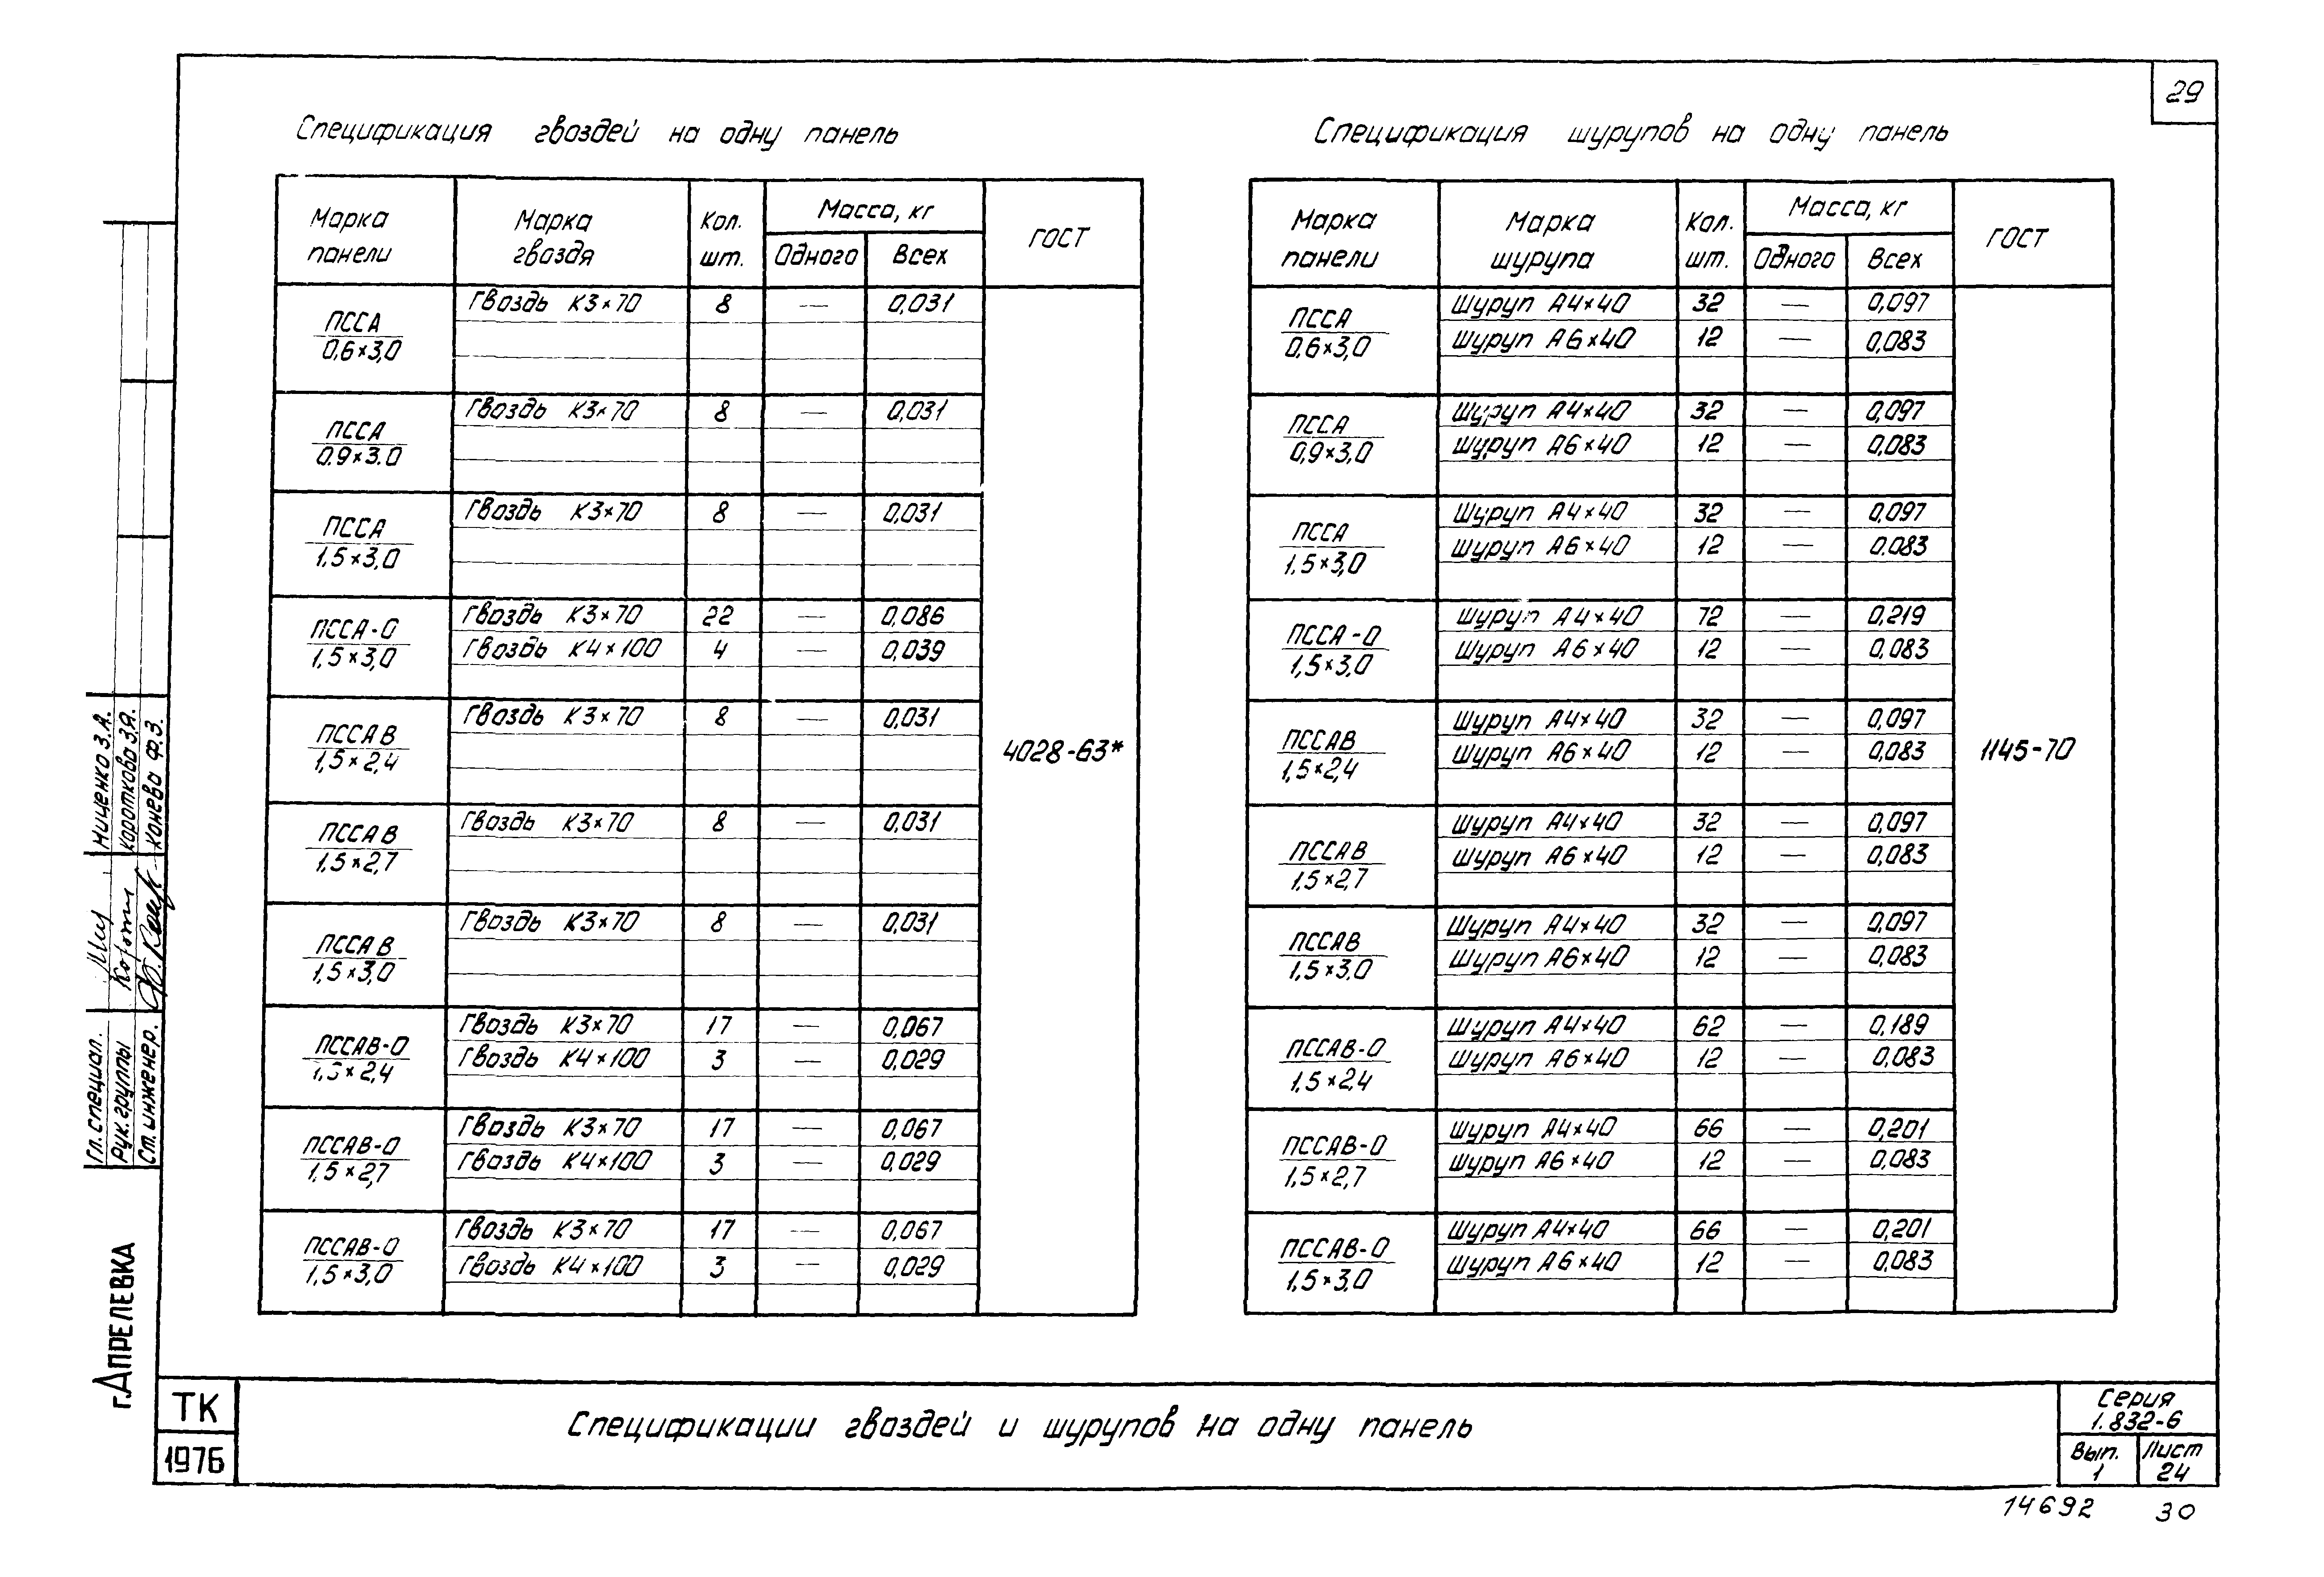 29
Спецификация гвоздей на одну панель
Марка панели | Марка гвоздя | Кол. шт. | Масса, кг | ГОСТ
Одного | Всех
ПССА 0,6×3,0 | Гвоздь К3×70 | 8 | — | 0,031
ПССА 0.9×3.0 | Гвоздь К3×70 | 8 | — | 0,031
ПССА 1,5×3,0 | Гвоздь К3×70 | 8 | — | 0,031
ПССА-О 1,5×3,0 | Гвоздь К3×70 | 22 | — | 0,086
Гвоздь К4×100 | 4 | — | 0,039
ПССАВ 1,5×2,4 | Гвоздь К3×70 | 8 | — | 0,031
4028-63*
ПССАВ 1,5×2,7 | Гвоздь К3×70 | 8 | — | 0,031
ПССАВ 1,5×3,0 | Гвоздь К3×70 | 8 | — | 0,031
ПССАВ-О 1,5×2,4 | Гвоздь К3×70 | 17 | — | 0,067
Гвоздь К4×100 | 3 | — | 0,029
ПССАВ-О 1,5×2,7 | Гвоздь К3×70 | 17 | — | 0,067
Гвоздь К4×100 | 3 | — | 0,029
ПССАВ-О 1,5×3,0 | Гвоздь К3×70 | 17 | — | 0,067
Гвоздь К4×100 | 3 | — | 0,029
Спецификация шурупов на одну панель
Марка панели | Марка шурупа | Кол. шт. | Масса, кг | ГОСТ
Одного | Всех
ПССА 0,6×3,0 | Шуруп А4×40 | 32 | — | 0,097
Шуруп А6×40 | 12 | — | 0,083
ПССА 0,9×3,0 | Шуруп А4×40 | 32 | — | 0,097
Шуруп А6×40 | 12 | — | 0,083
ПССА 1,5×3,0 | Шуруп А4×40 | 32 | — | 0,097
Шуруп А6×40 | 12 | — | 0.083
ПССА-О 1,5×3,0 | Шуруп А4×40 | 72 | — | 0,219
Шуруп А6×40 | 12 | — | 0.083
ПССАВ 1,5×2,4 | Шуруп А4×40 | 32 | — | 0,097
Шуруп А6×40 | 12 | — | 0,083
1145-70
ПССАВ 1,5×2,7 | Шуруп А4×40 | 32 | — | 0,097
Шуруп А6×40 | 12 | — | 0,083
ПССАВ 1,5×3,0 | Шуруп А4×40 | 32 | — | 0,097
Шуруп А6×40 | 12 | — | 0,083
ПССАВ-О 1,5×2,4 | Шуруп А4×40 | 62 | — | 0,189
Шуруп А6×40 | 12 | — | 0,083
ПССАВ-О 1,5×2,7 | Шуруп А4×40 | 66 | — | 0,201
Шуруп А6×40 | 12 | — | 0,083
ПССАВ-О 1,5×3,0 | Шуруп А4×40 | 66 | — | 0,201
Шуруп А6×40 | 12 | — | 0,083
Гл. специал. Мищенко З.А.
Рук. группы Короткова З.Я.
Ст. инженер. Конева Ф.З.
г. Апрелевка
ТК
1976
Спецификации гвоздей и шурупов на одну панель
Серия
1.832-6
Вып. 1
Лист 24
14692 30